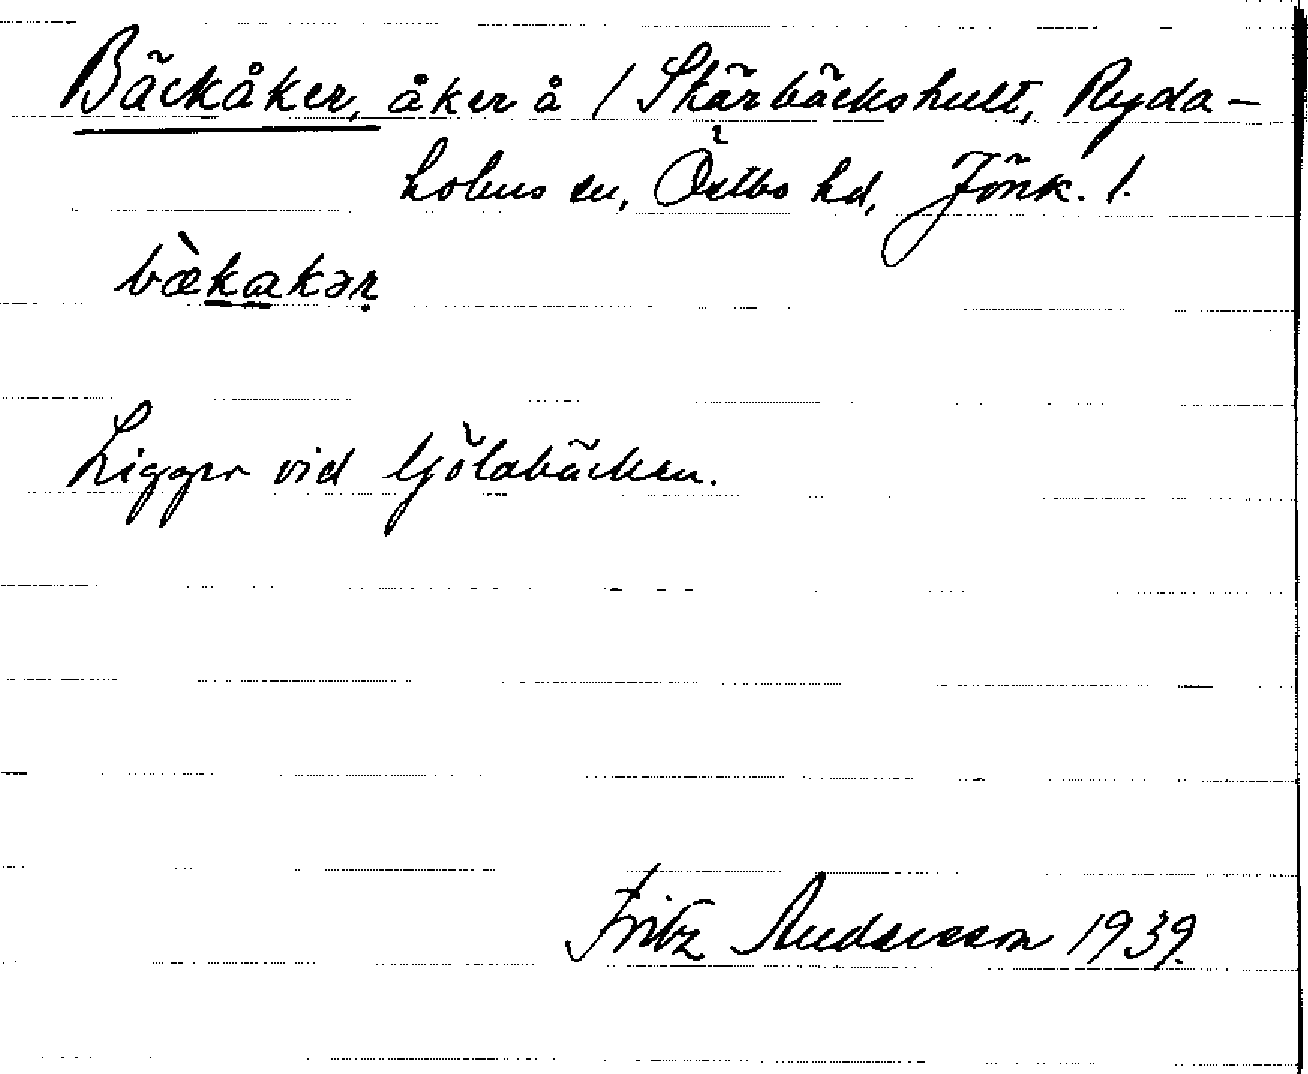 Bäckåker, åker å / Skärbäckshult, Ryda-
holms sn, Östbo hd, Jönk. l.
bækakər
Ligger vid Gölabäcken.
Fritz Andersson 1939.